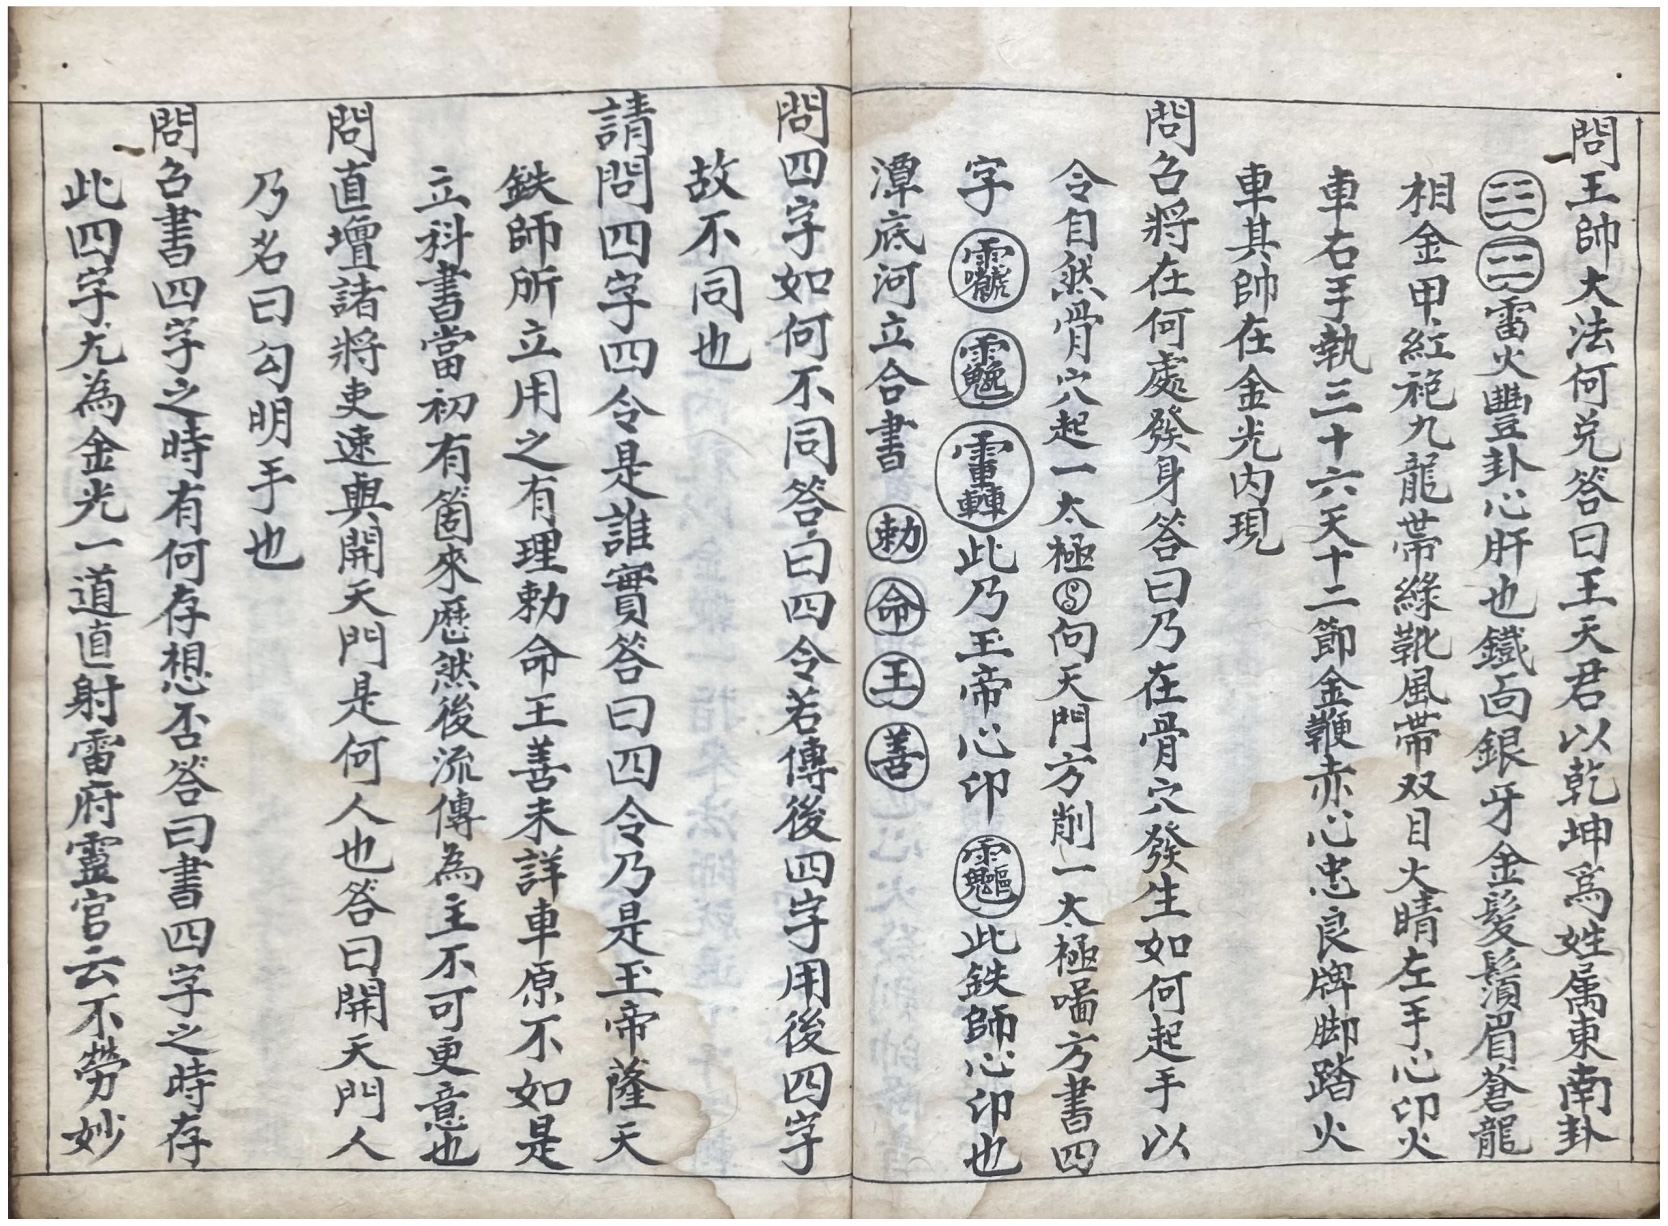 問王帥大法何兑答曰王天君以乾坤爲姓属東南卦
☳☲雷火豐卦心肝也鐵面銀牙金髮鬚眉蒼龍
相金甲紅袍九龍帶綠靴風帶双目火睛左手心印火
車右手執三十六天十二節金鞭赤心忠良牌脚踏火
車其帥在金光内現
問召將在何處發身答曰乃在骨穴發生如何起手以
令自然骨穴起一太極向天門方削一太極噃方書四
字此乃玉帝心印此鉄師心印也
潭底河立合書勅命王善
問四字如何不同答曰四令若傳後四字用後四字
故不同也
請問四字四令是誰實答曰四令乃是玉帝薩天
鉄師所立用之有理勅命王善未詳車原不如是
立科書當初有箇來歷然後流傳為主不可更意也
問直壇諸將吏速與開天門是何人也答曰開天門人
乃名曰勾明手也
問召書四字之時有何存想否答曰書四字之時存
此四字尤為金光一道直射雷府靈官云不勞妙